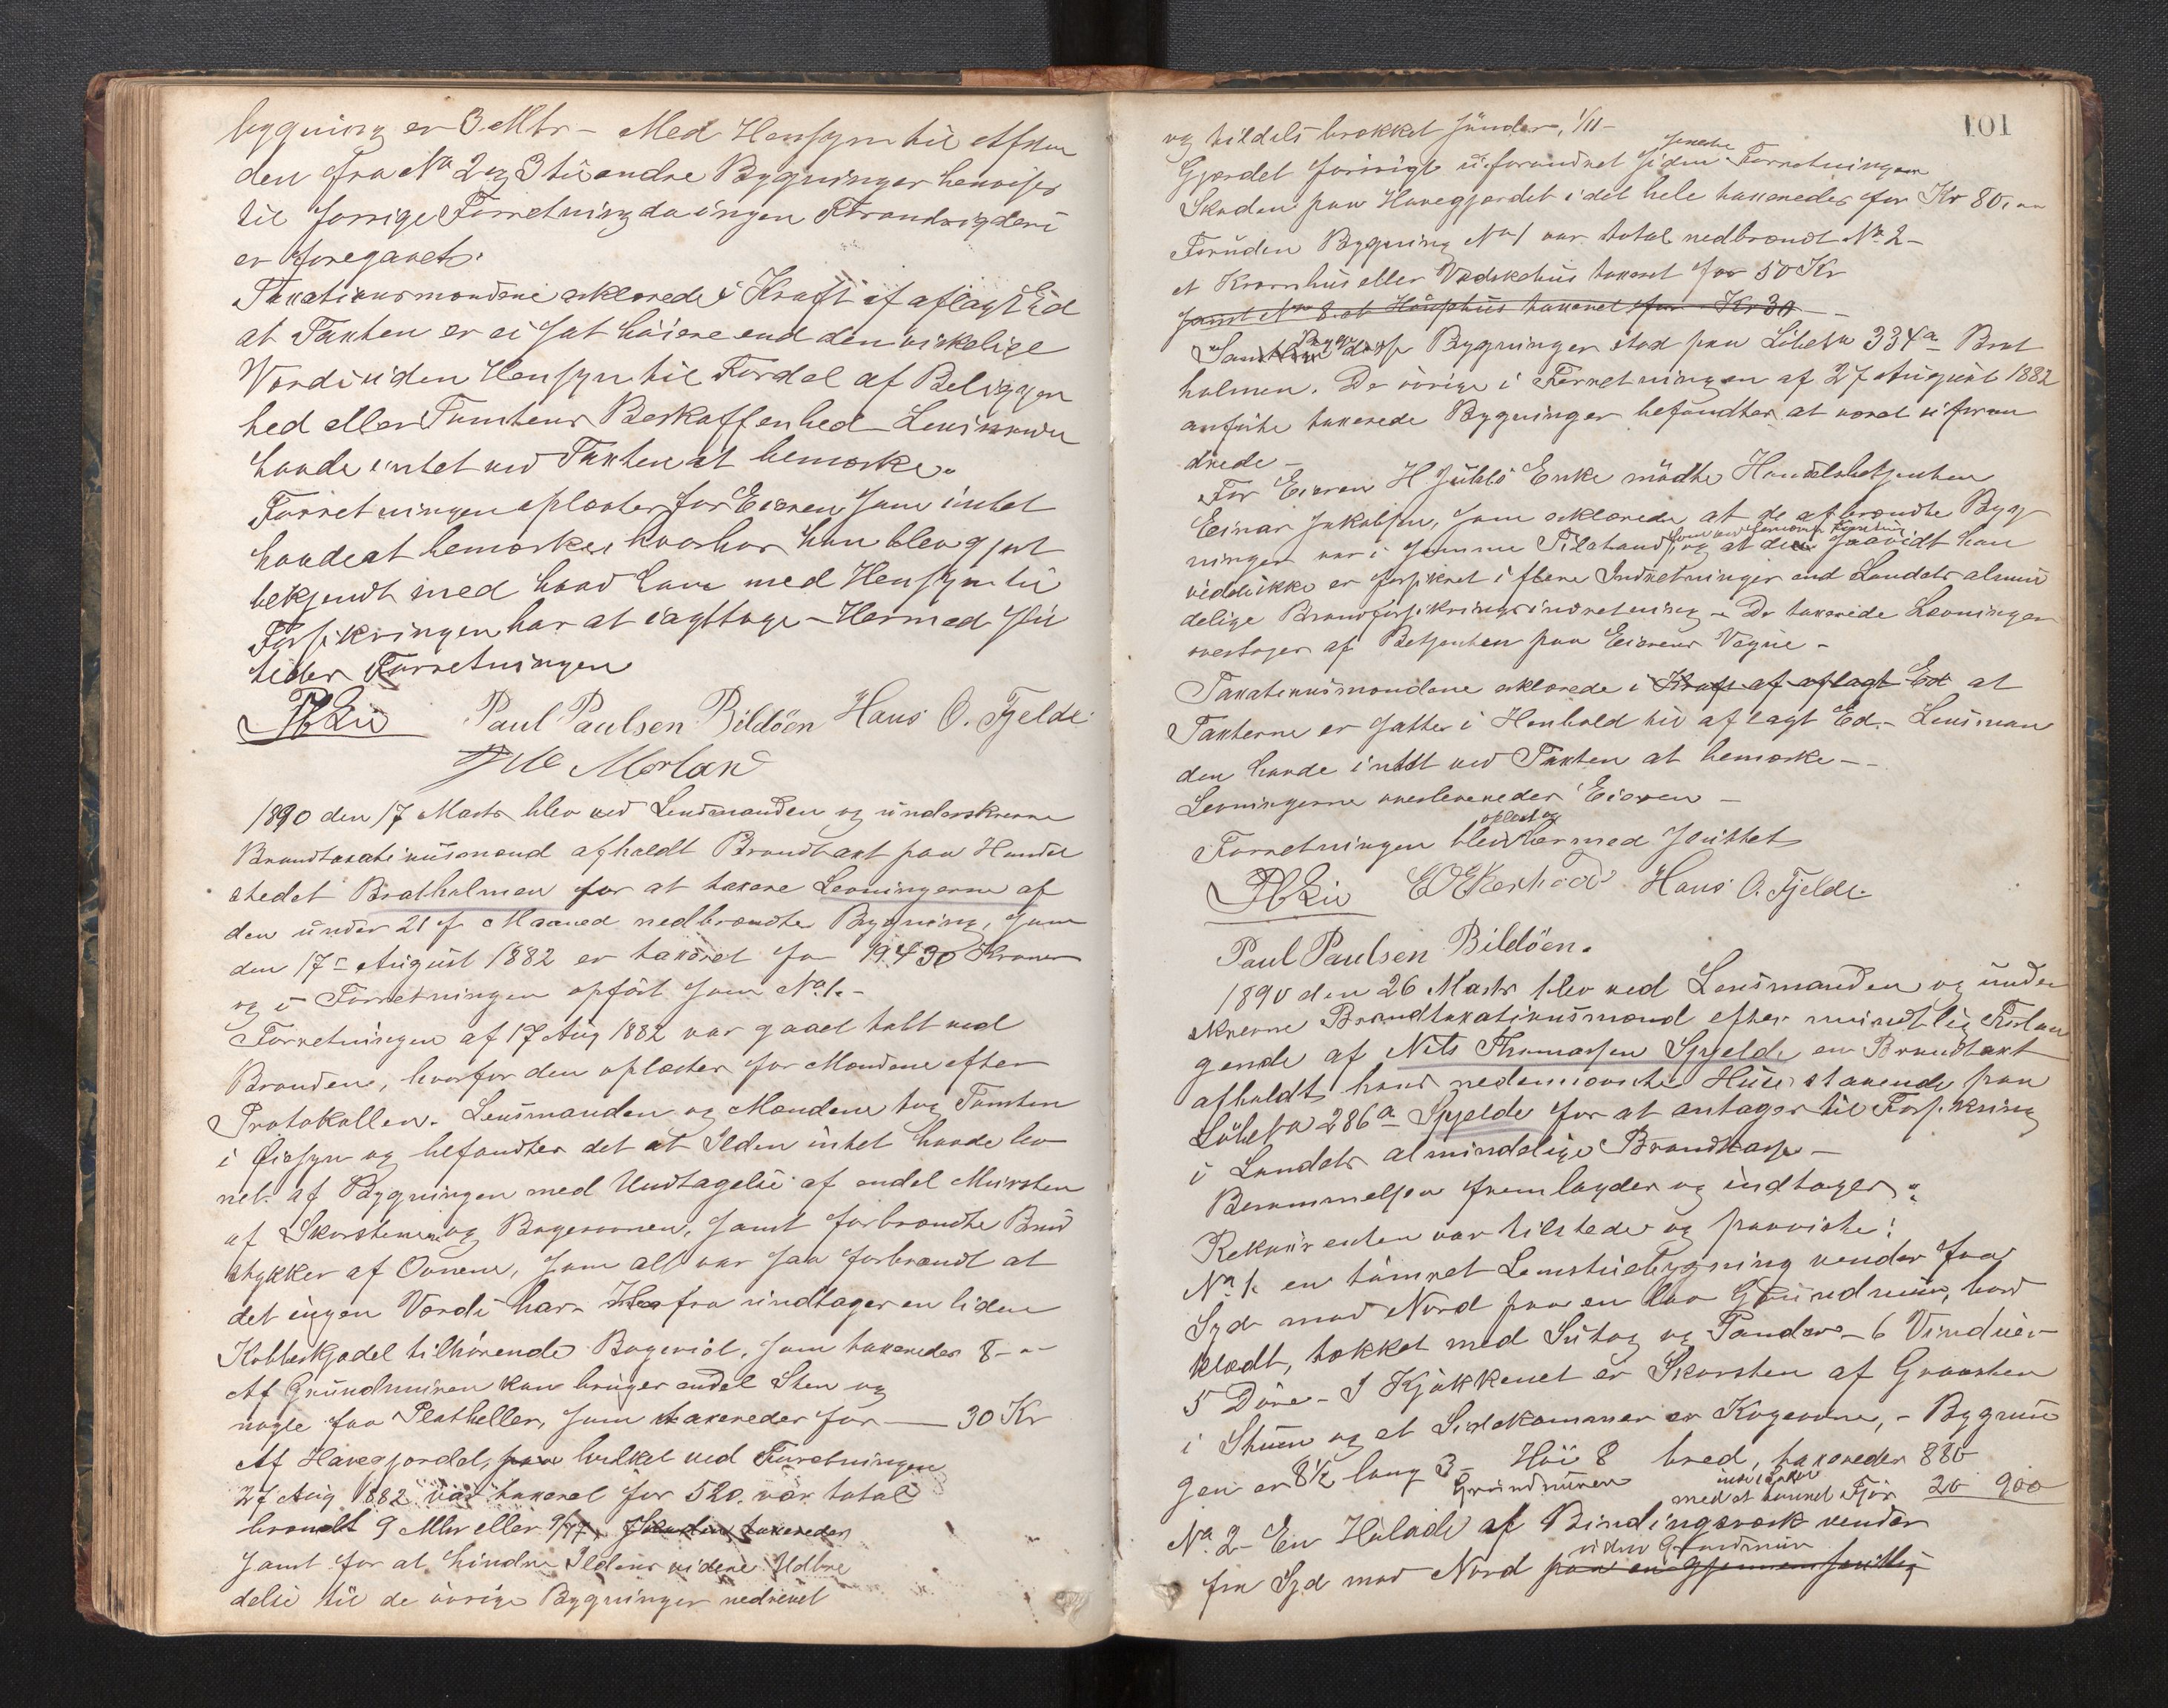 bygning er 3 Mtr - Med Hensyn til Afstan
den fra No 2 og 3 til andre Bygninger henvises
til forrige Forretning da ingen Forandring deri
er foregaaet.
Taxationsmændene erklærede i Kraft af aflagt Ed
at Taxten er ei sat høiere end den virkelige
Værdi uden Hensyn til Fordel af Beliggen
hed eller Tomtens Beskaffenhed - Lensmanden
havde intet ved Taxten at bemærke.
Forretningen oplæstes for Eieren som intet
havde at bemærke, hvorhos han blev gjort
bekjendt med hvad han med Hensyn til
Forsikringen har at iagttage - Hermed slu
tedes Forretningen
Paul Paulsen Bildöen Hans O. Fjelde
1890 den 17 Marts blev ved Lensmanden og underskrevne
Brandtaxationsmænd afholdt Brandtaxt paa Handel
stedet Bratholmen for at taxere Levningerne af
den under 21 f Maaned nedbrændte Bygning, som
den 17de August 1882 er taxeret for 19430 Kroner
og i Forretningen opført som No 1. -
Forretningen af 17 Aug 1882 var gaaet tabt ved
Branden, hvorfor den oplæstes for Mændene efter
Protokollen. Lensmanden og Mændene tog Tomten
i Øiesyn og befandtes det at Ilden intet havde lev
net af Bygningen med Undtagelse af endel Mursten
af Skorstenene og Bagerovnen, samt forbrændte Brud
stykker af Ovnene, som alt var saa forbrændt at
det ingen Værdi har. Herfra undtages en liden
Kobberkjedel tilhørende Bageriet, som taxeredes 8 - "-
Af Grundmuren kan bruges endel Sten og
nogle faa Plathelle, som taxeredes for — 30 Kr
Af Havegjerdet, paa hvilket ved Forretningen
27 Aug 1882 var taxeret for 520. var total
brændt 9 Mtr eller 9/77, Skaden taxeredes
samt for at hindre Ildens videre Udbre
delse til de øvrige Bygninger nedrevet
101
og tildels brækket sünder, 1/11 -
Gjærdet forøvrigt uforandret siden seneste Forretningen
Skaden paa Havegjerdet i det hele taxeredes for Kr 80, "
Foruden Bygning No 1 var total nedbrændt No 2 -
et Kvarnhus eller Vadskehus taxeret for 50 Kr
samt No 8 et Hønsehus taxeret for Kr 30 -
Samtlige disse Bygninger stod paa Löbe No 334a Brat
holmen. De øvrige i Forretningen af 27 August 1882
anførte taxerede Bygninger befandtes at været uforan
drede -
For Eieren H Juhls Enke mødte Handelsbetjenten
Einar Jakobsen, som erklærede at de afbrændte Byg
ninger var i samme Tilstand som ved Forretning, og at de saavidt han
vidste ikke er forsikret i flere Indretninger end Landets almin
delige Brandforsikringsindretning - De taxerede Levninger
overtoges af Betjenten paa Eierens Vegne -
Taxationsmændene erklærede i Kraft af aflagt Ed at
Taxterne er satte i Henhold til aflagt Ed. - Lensman
den havde intet ved Taxten at bemærke -
Levningerne overleveredes Eieren -
Forretningen blev oplæst og hermed sluttet
Hans O. Fjelde
Paul Paulsen Bildöen.
1890 den 26 Marts blev ved Lensmanden og under
skrevne Brandtaxationsmænd efter mundtlig Forlan
gende af Nils Thomassen Spjelde en Brandtaxt
afholdt hans nedennævnte Huse staaende paa
Löbe No 286a Spjelde for at antages til Forsikring
i Landets almindelige Brandkasse -
Berammelsen fremlagdes og indtages:
Rekvirenten var tilstede og paaviste:
No 1. en tømret Lemstuebygning vender fra
Syd mod Nord paa en lav Grundmur, bord
klædt, tækket med Sutag og Pander - 6 Vinduer
5 Døre - I Kjøkkenet er Skorsten af Graasten
i Stuen og et Sidekammer er Kogeovne, - Bygnin
gen er 8½ lang 3 - Høi 8 bred, taxeredes 880
Grundmuren
med et tømret For 20 900
No 2 - En Hölade af Bindingsværk vender
fra Syd mod Nord paa en gjennemsnitlig
uden Grundmur